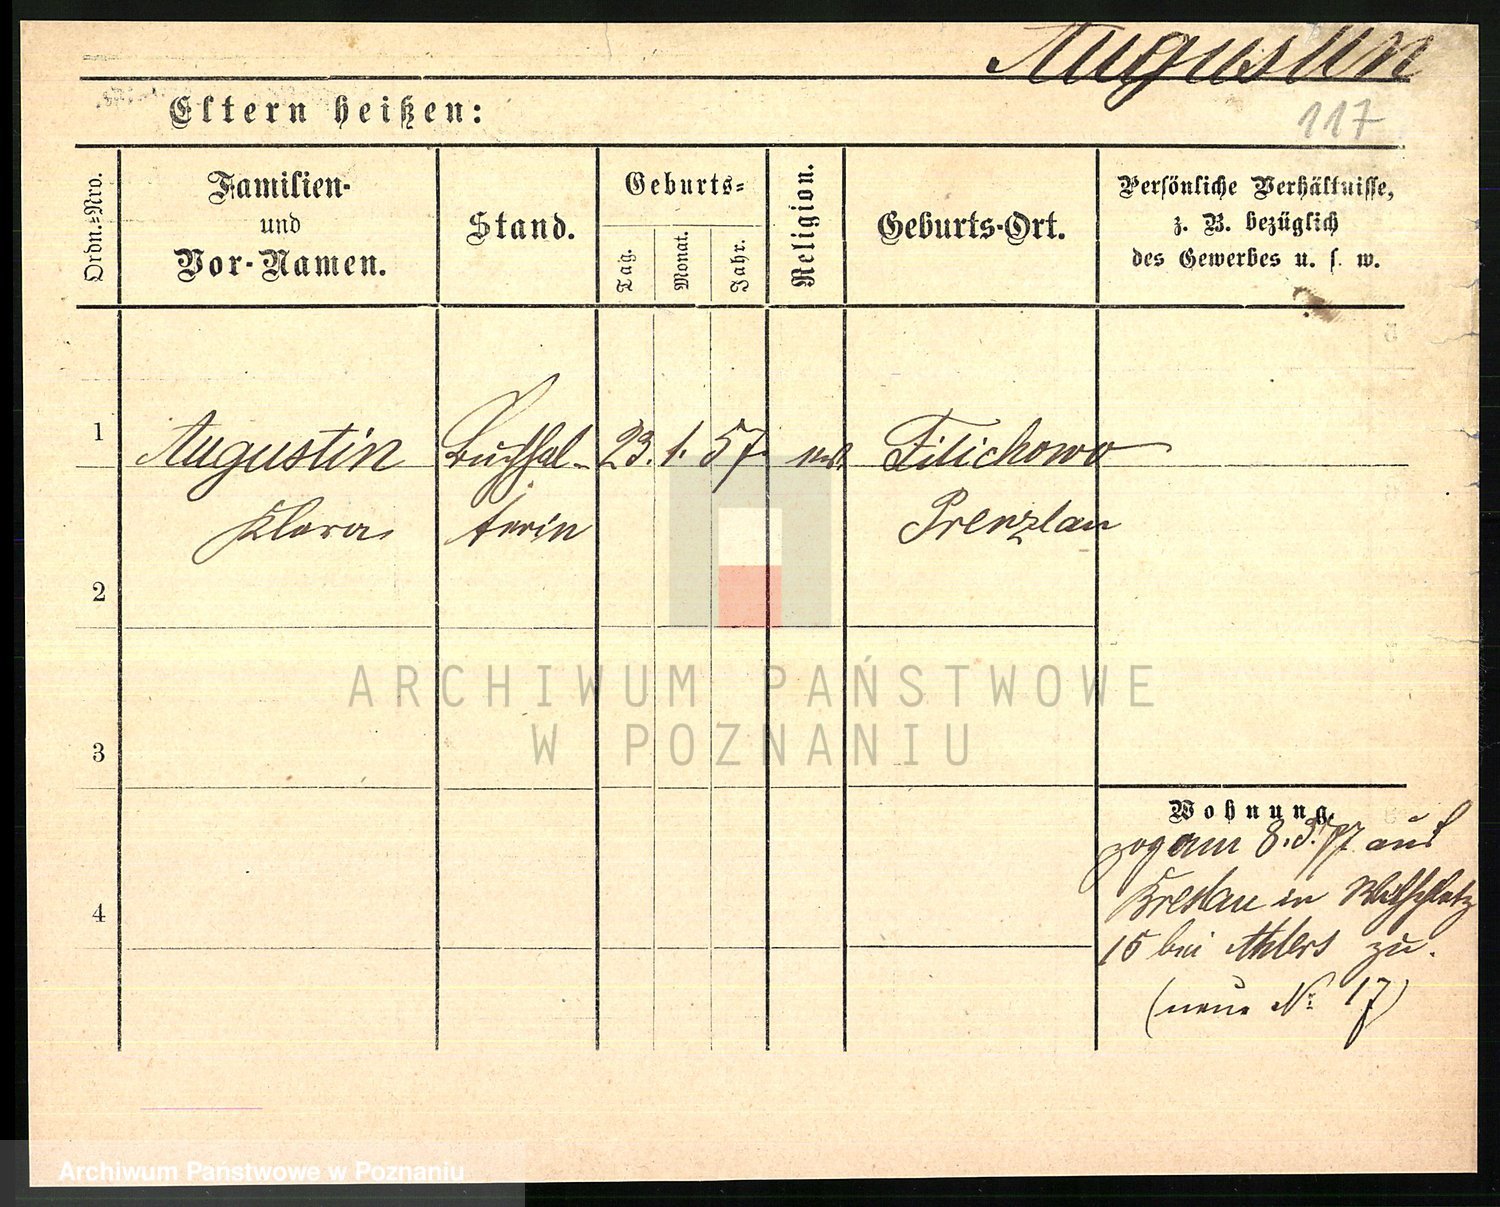 Augustin
117
Eltern heißen:
Ordn.-Nro.
Familien-
und
Vor-Namen.
Stand.
Geburts-
Tag.
Monat.
Jahr.
Religion.
Geburts-Ort.
Persönliche Verhältnisse,
z. B. bezüglich
des Gewerbes u. s. w.
1
Augustin Buchhal- 23. 1. 57. Filichowo
Klara terin Prenzlau
2
3
4
Wohnung.
zog am 8.3.77 aus
Breslau in
15 bei Ahlers zu.
(neue No 17)
ARCHIWUM PAŃSTWOWE
W POZNANIU
Archiwum Państwowe w Poznaniu